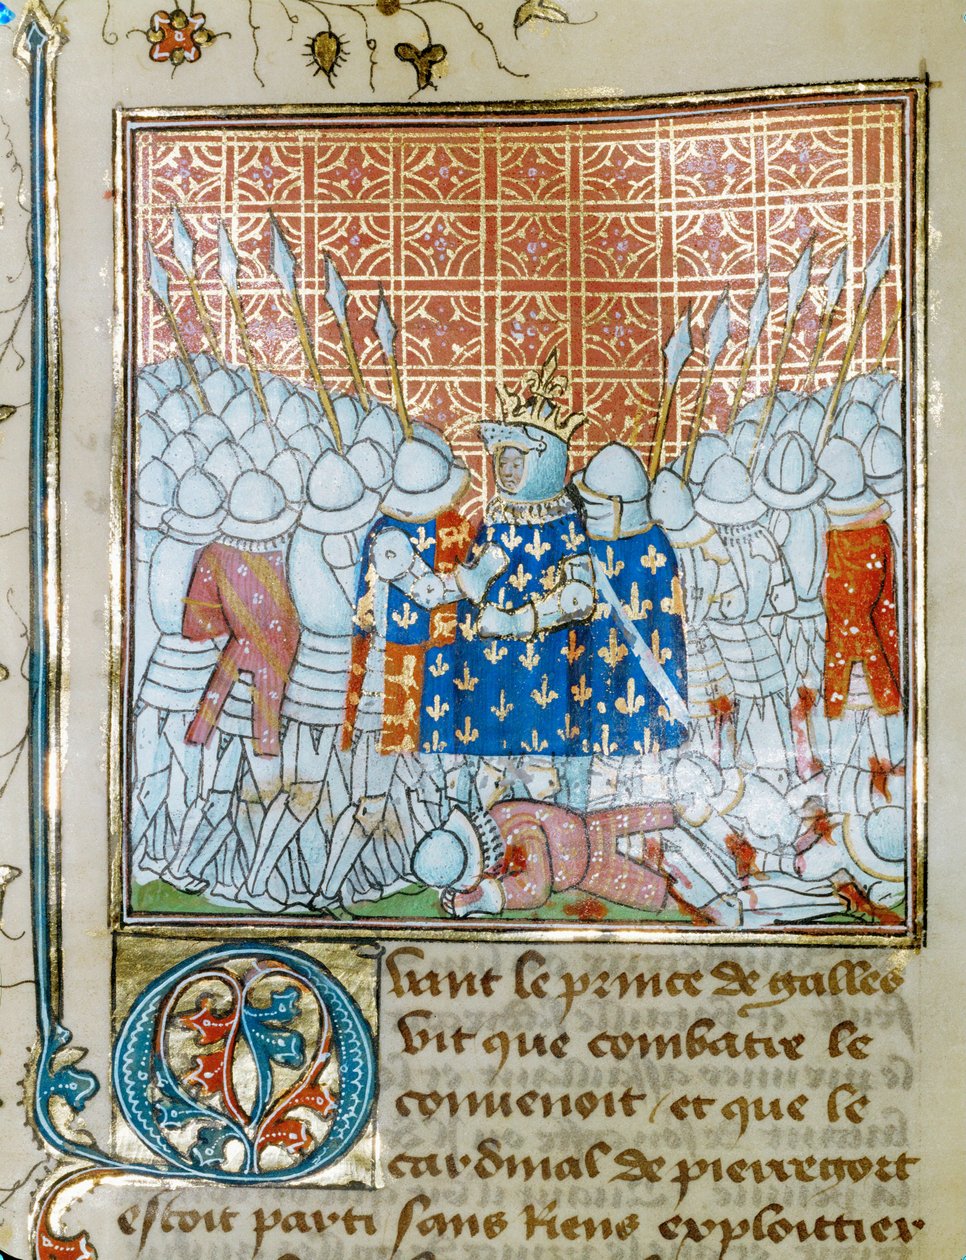 Quant le prince de galles
vit que combatre le
conuenoit / et que le
cardinal de pierregort
estoit parti sans riens exploittier